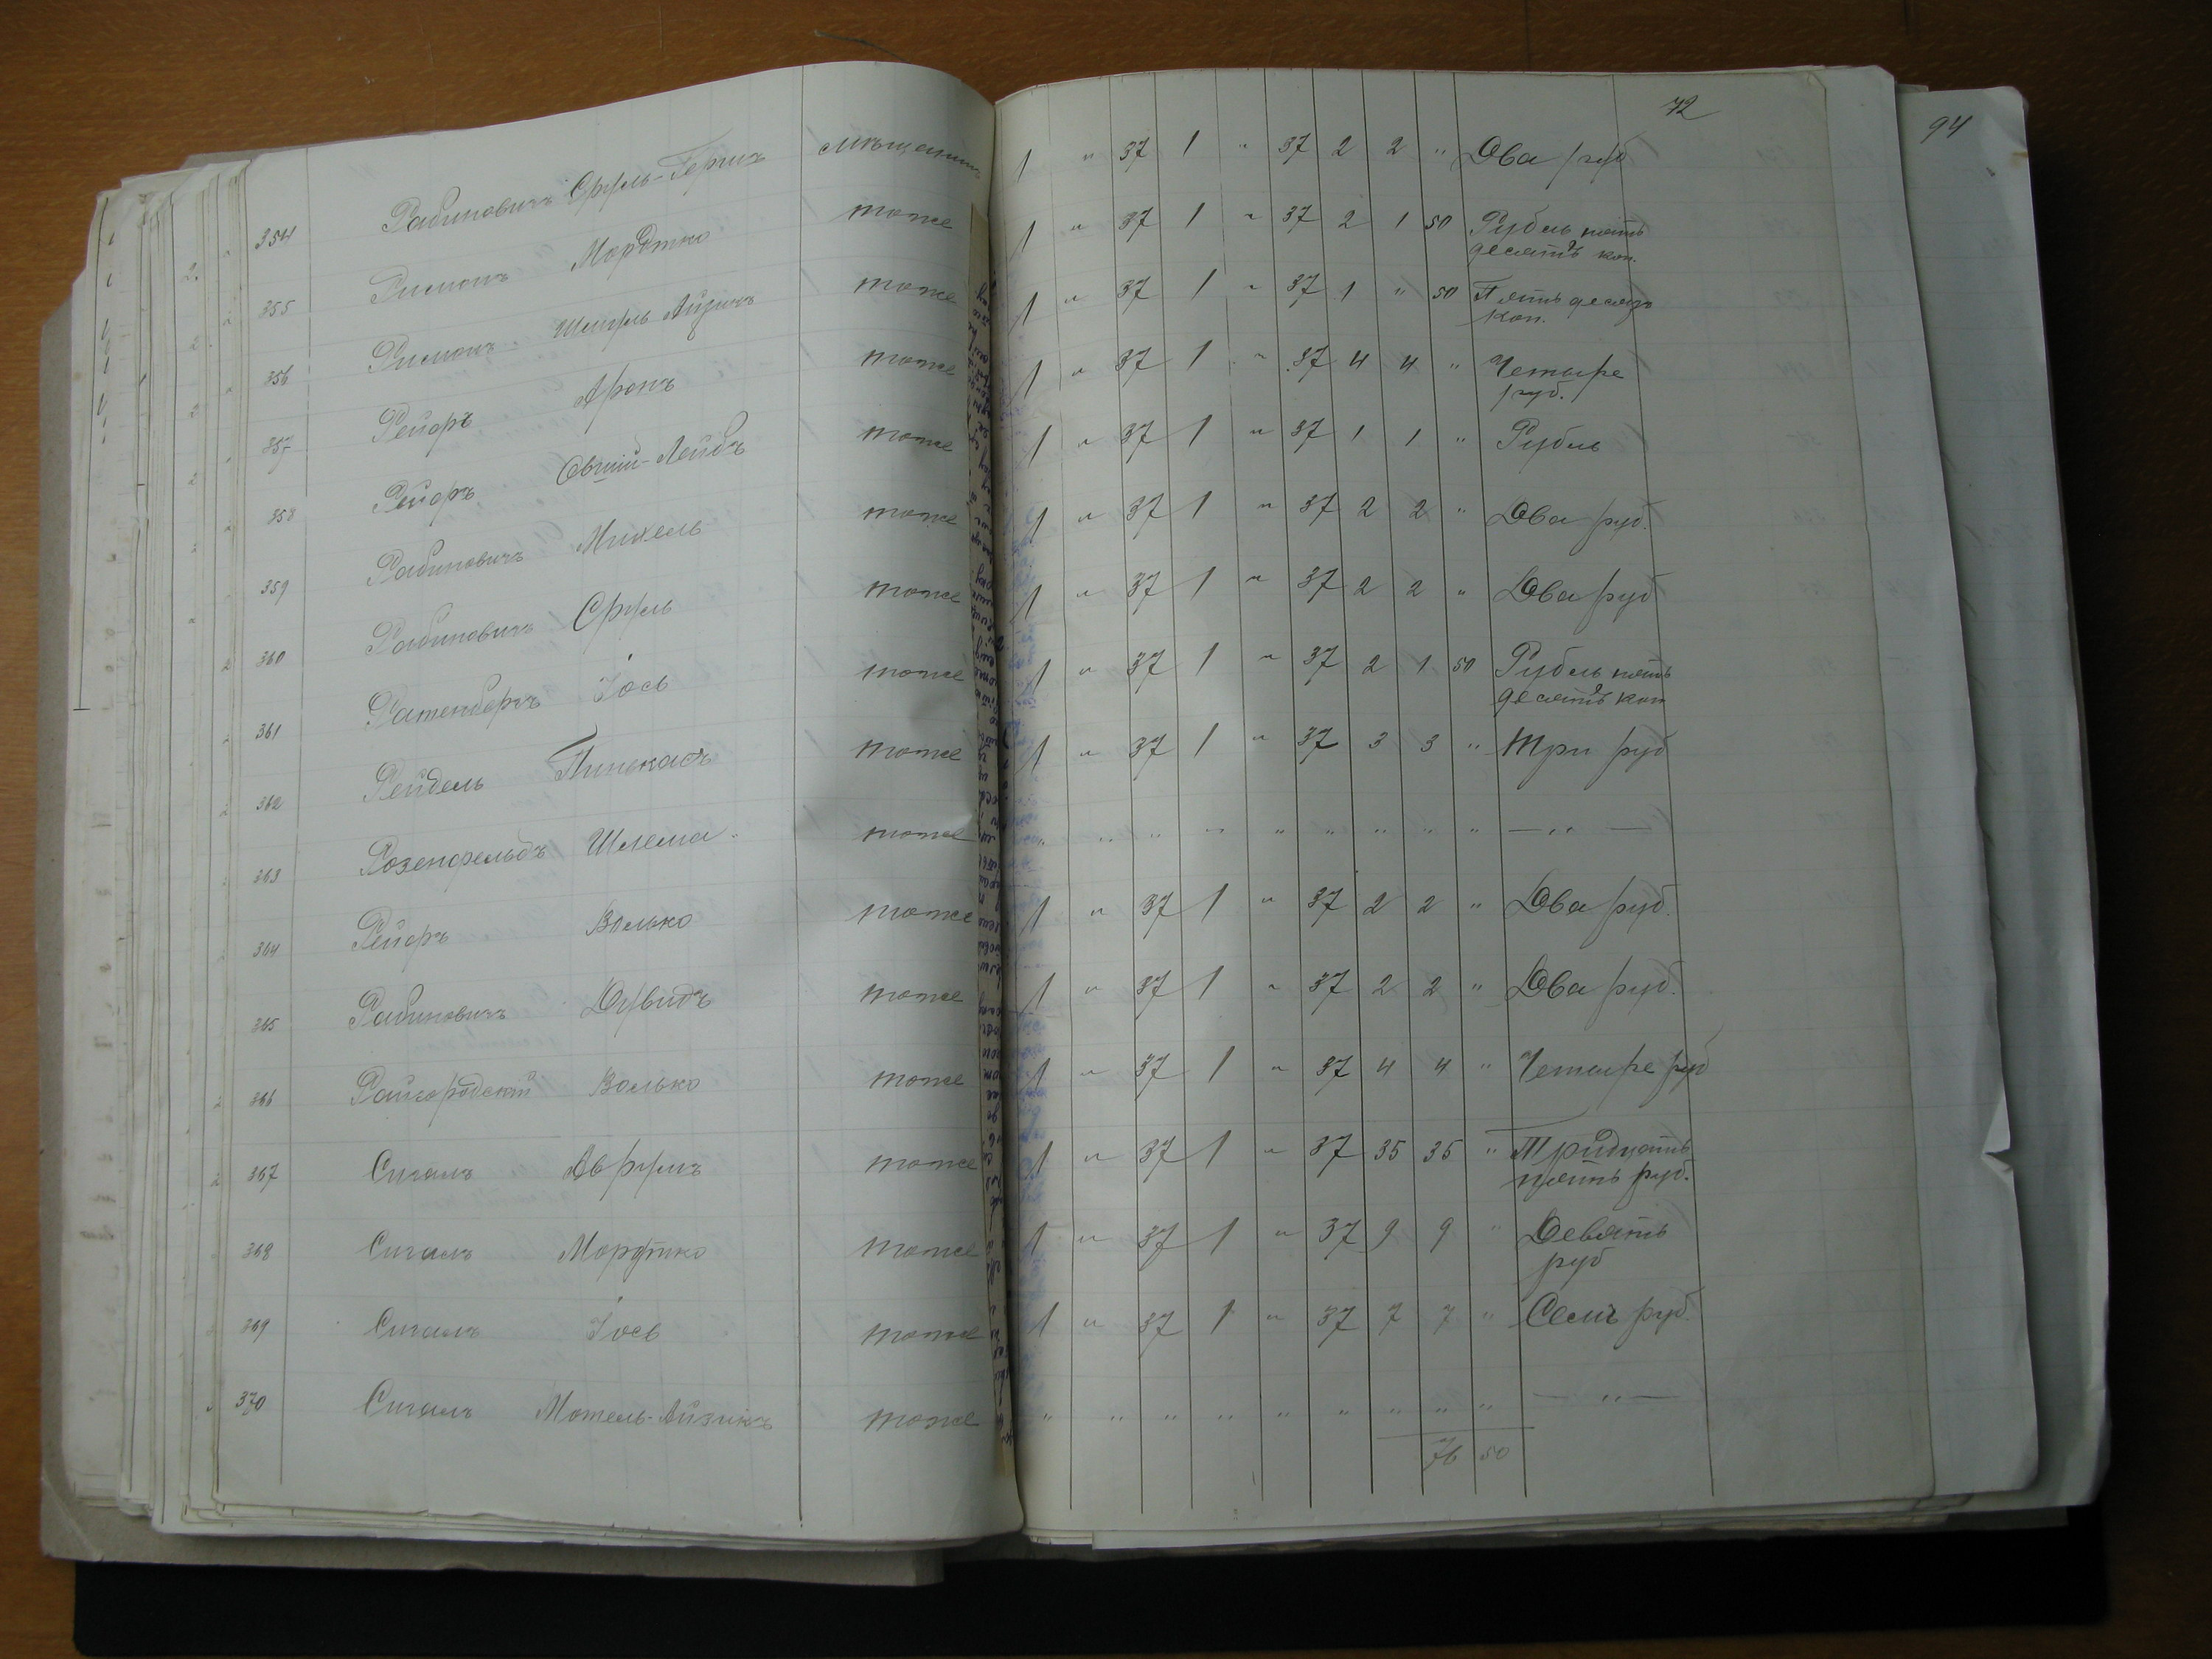 72
94
354 Рабиновичъ Сруль-Гершъ мѣщанинъ 1 " 37 1 " 37 2 2 " Два руб
355 Рисманъ Мордтко тоже 1 " 37 1 " 37 2 1 50 Рубль пять
десятъ коп.
356 Рисманъ Шмуль Айзикъ тоже 1 " 37 1 " 37 1 " 50 Пять десятъ
коп.
357 Рейфъ Аронъ тоже 1 " 37 1 " 37 4 4 " Четыре
руб.
358 Рейфъ Овший-Лейбъ тоже 1 " 37 1 " 37 1 1 " Рубль
359 Рабиновичъ Михель тоже 1 " 37 1 " 37 2 2 " Два руб.
360 Рабиновичъ Сруль тоже 1 " 37 1 " 37 2 2 " Два руб
361 Ратенбергъ Іось тоже 1 " 37 1 " 37 2 1 50 Рубль пять
десятъ коп
362 Рейдель Пинькасъ тоже 1 " 37 1 " 37 3 3 " Три руб
363 Розенфельдъ Шлема тоже " " " " " " " " " — " —
364 Рейфъ Волько тоже 1 " 37 1 " 37 2 2 " Два руб.
365 Рабиновичъ Дувидъ тоже 1 " 37 1 " 37 2 2 " Два руб.
366 Райгородскій Волько тоже 1 " 37 1 " 37 4 4 " Четыре руб
367 Сигалъ Аврумъ тоже 1 " 37 1 " 37 35 35 " Тридцать
пять руб.
368 Сигалъ Мордтко тоже 1 " 37 1 " 37 9 9 " Девять
руб
369 Сигалъ Іось тоже 1 " 37 1 " 37 7 7 " Семь руб.
370 Сигалъ Мотель-Айзикъ тоже " " " " " " " " " — " —
76 50